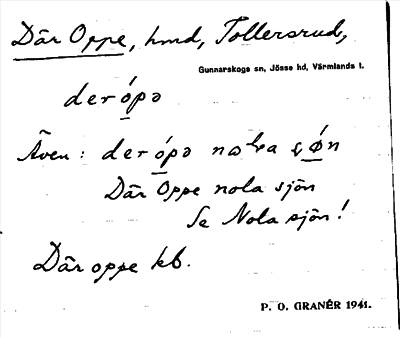 Där Oppe, hmd, Tollersrud,
Gunnarskogs sn, Jösse hd, Värmlands l.
derópə
Även: derópə
Där Oppe nola sjön
Se Nola sjön!
Där oppe kb.
P. O. GRANÉR 1941.